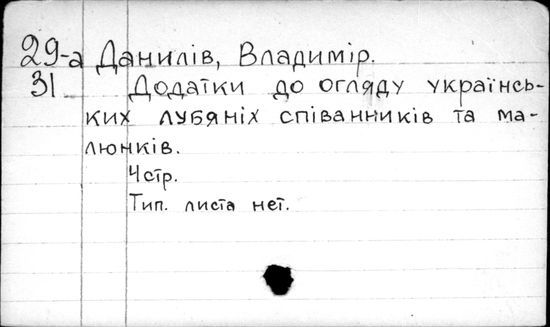 29-а Данилів, Владимір.
31 Додатки до огляду українсь-
ких лубяніх співанників та ма-
люнків.
4 стр.
Тип. листа нет.